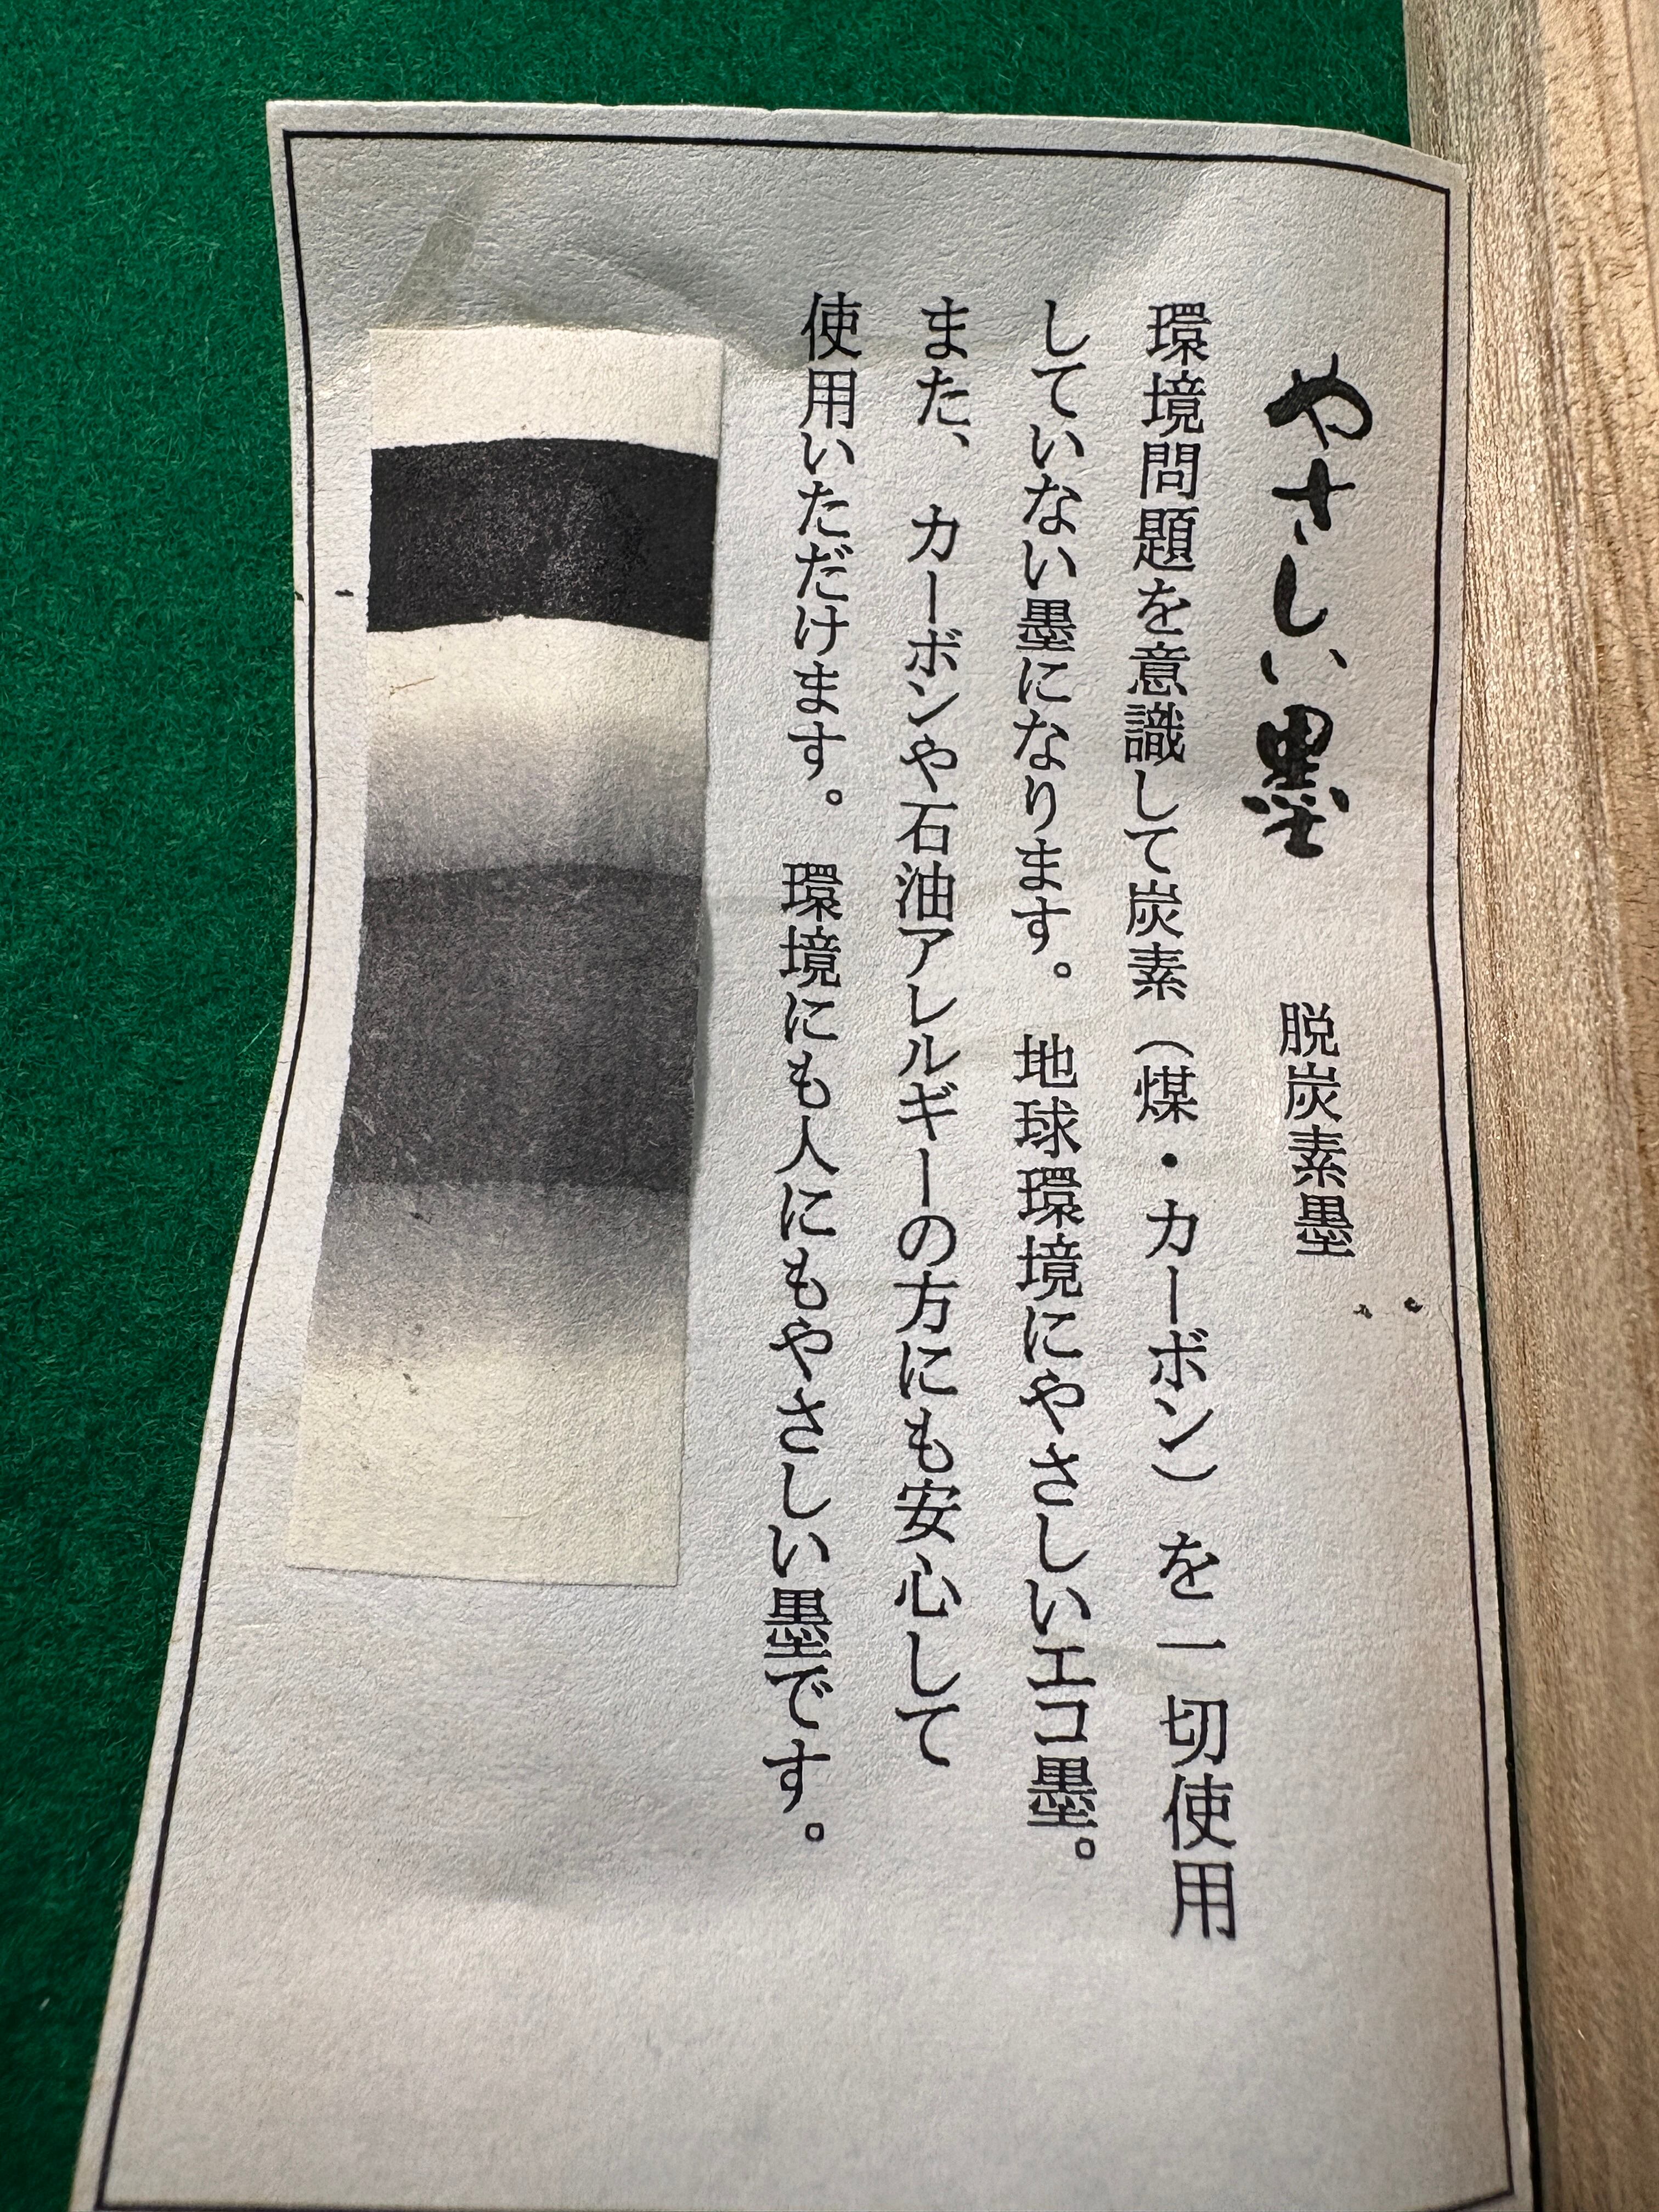 やさしい墨　脱炭素墨
環境問題を意識して炭素（煤・カーボン）を一切使用
していない墨になります。地球環境にやさしいエコ墨。
また、カーボンや石油アレルギーの方にも安心して
使用いただけます。環境にも人にもやさしい墨です。